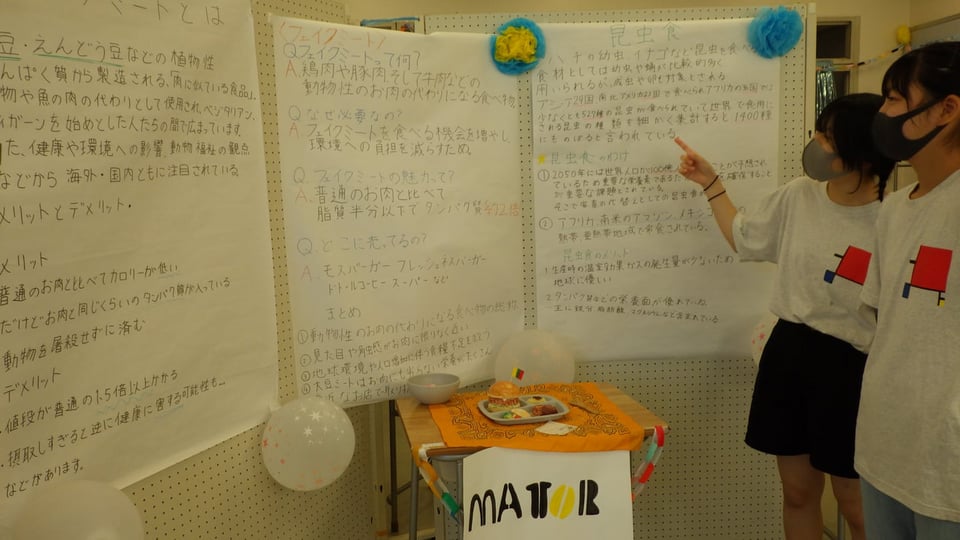 ミートとは
豆・えんどう豆などの植物性
んぱく質から製造される、肉に似ている食品。
物や魚の肉の代わりとして使用され、ベジタリアン、
ィガーンを始めとした人たちの間で広まっています。
た、健康や環境への影響、動物福祉の観点
などから 海外・国内ともに注目されている
メリットとデメリット。
メリット
普通のお肉と比べてカロリーが低い
だけどお肉と同じくらいのタンパク質が入っている
動物を屠殺せずに済む
デメリット
値段が普通の1.5倍以上かかる
摂取しすぎると逆に健康に害する可能性も…
などがあります。
〈フェイクミート〉
Q フェイクミートって何?
A. 鶏肉や豚肉そして牛肉などの
動物性のお肉の代わりになる食べ物。
Q. なぜ必要なの?
A. フェイクミートを食べる機会を増やし、
環境への負担を減らすため。
Q. フェイクミートの魅力って?
A. 普通のお肉と比べて
脂質半分以下でタンパク質
Q. どこに売ってるの?
A. モスバーガー フレッシュネスバーガー
ドトールコーヒー スーパー など
まとめ
①動物性のお肉の代わりになる食べ物の総称
②見た目や触感がお肉に限りなく近い
③地球環境や人口増加に伴う食糧不足を救う
④大豆ミートはお肉にも劣らない栄養がたくさん
昆虫食
ハチの幼虫、イナゴなど昆虫を食べる
食材としては幼虫や蛹が比較的多く
用いられるが、成虫や卵も対象とされる
アジア29国 南北アメリカ23国で食べられアフリカの36国で
少なくとも527種の昆虫が食べられていて世界で食用に
される昆虫の種類を細かく集計すると1900種
にものぼると言われている。
★昆虫食のわけ
① 2050年には世界人口が100億
② アフリカ、南米のアマゾン、メキシコ
熱帯、亜熱帯地域で常食されている。
昆虫食のメリット
1. 生産時の温室効果ガスの発生量が少ないため
地球に優しい
2. タンパク質などの栄養面が優れている
MATTOB